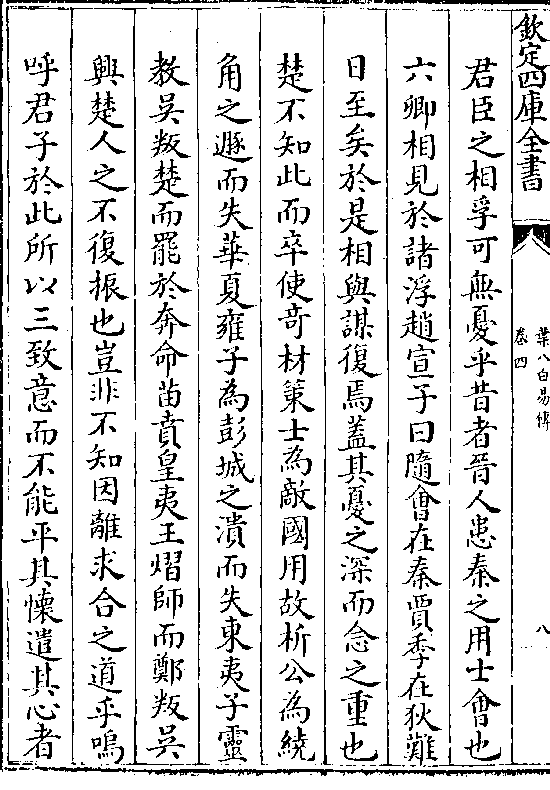 欽定四庫全書
葉八白易傳
卷四
八
君臣之相孚可無憂乎昔者晉人患秦之用士會也
六卿相見於諸浮趙宣子曰隨會在秦賈季在狄難
日至矣於是相與謀復焉蓋其憂之深而念之重也
楚不知此而卒使奇材策士為敵國用故析公為繞
角之遯而失華夏雍子為彭城之潰而失東夷子靈
教吳叛楚而罷於奔命苗賁皇夷王熠師而鄭叛吳
興楚人之不復振也豈非不知因離求合之道乎嗚
呼君子於此所以三致意而不能平其懐遣其心者